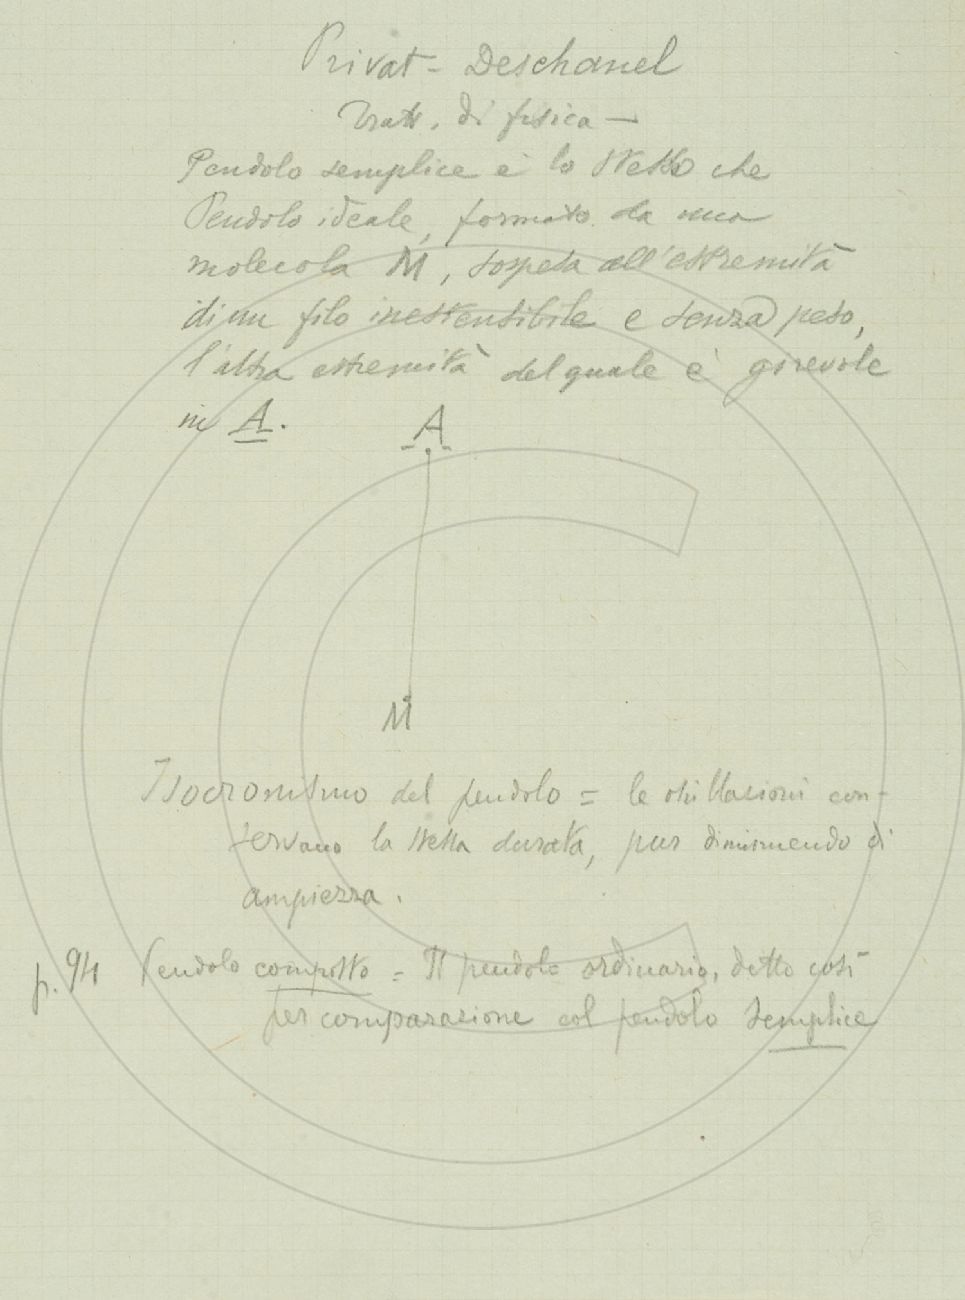 Privat - Deschanel
Tratt. di fisica —
Pendolo semplice è lo stesso che
Pendolo ideale, formato da una
molecola M, sospesa all'estremità
di un filo inestensibile e senza peso,
l'altra estremità del quale è girevole
in A.
A
M
Isocronismo del pendolo = le oscillazioni con-
servano la stessa durata, pur diminuendo di
ampiezza.
p. 94 Pendolo composto = Il pendolo ordinario, detto così
per comparazione col pendolo semplice